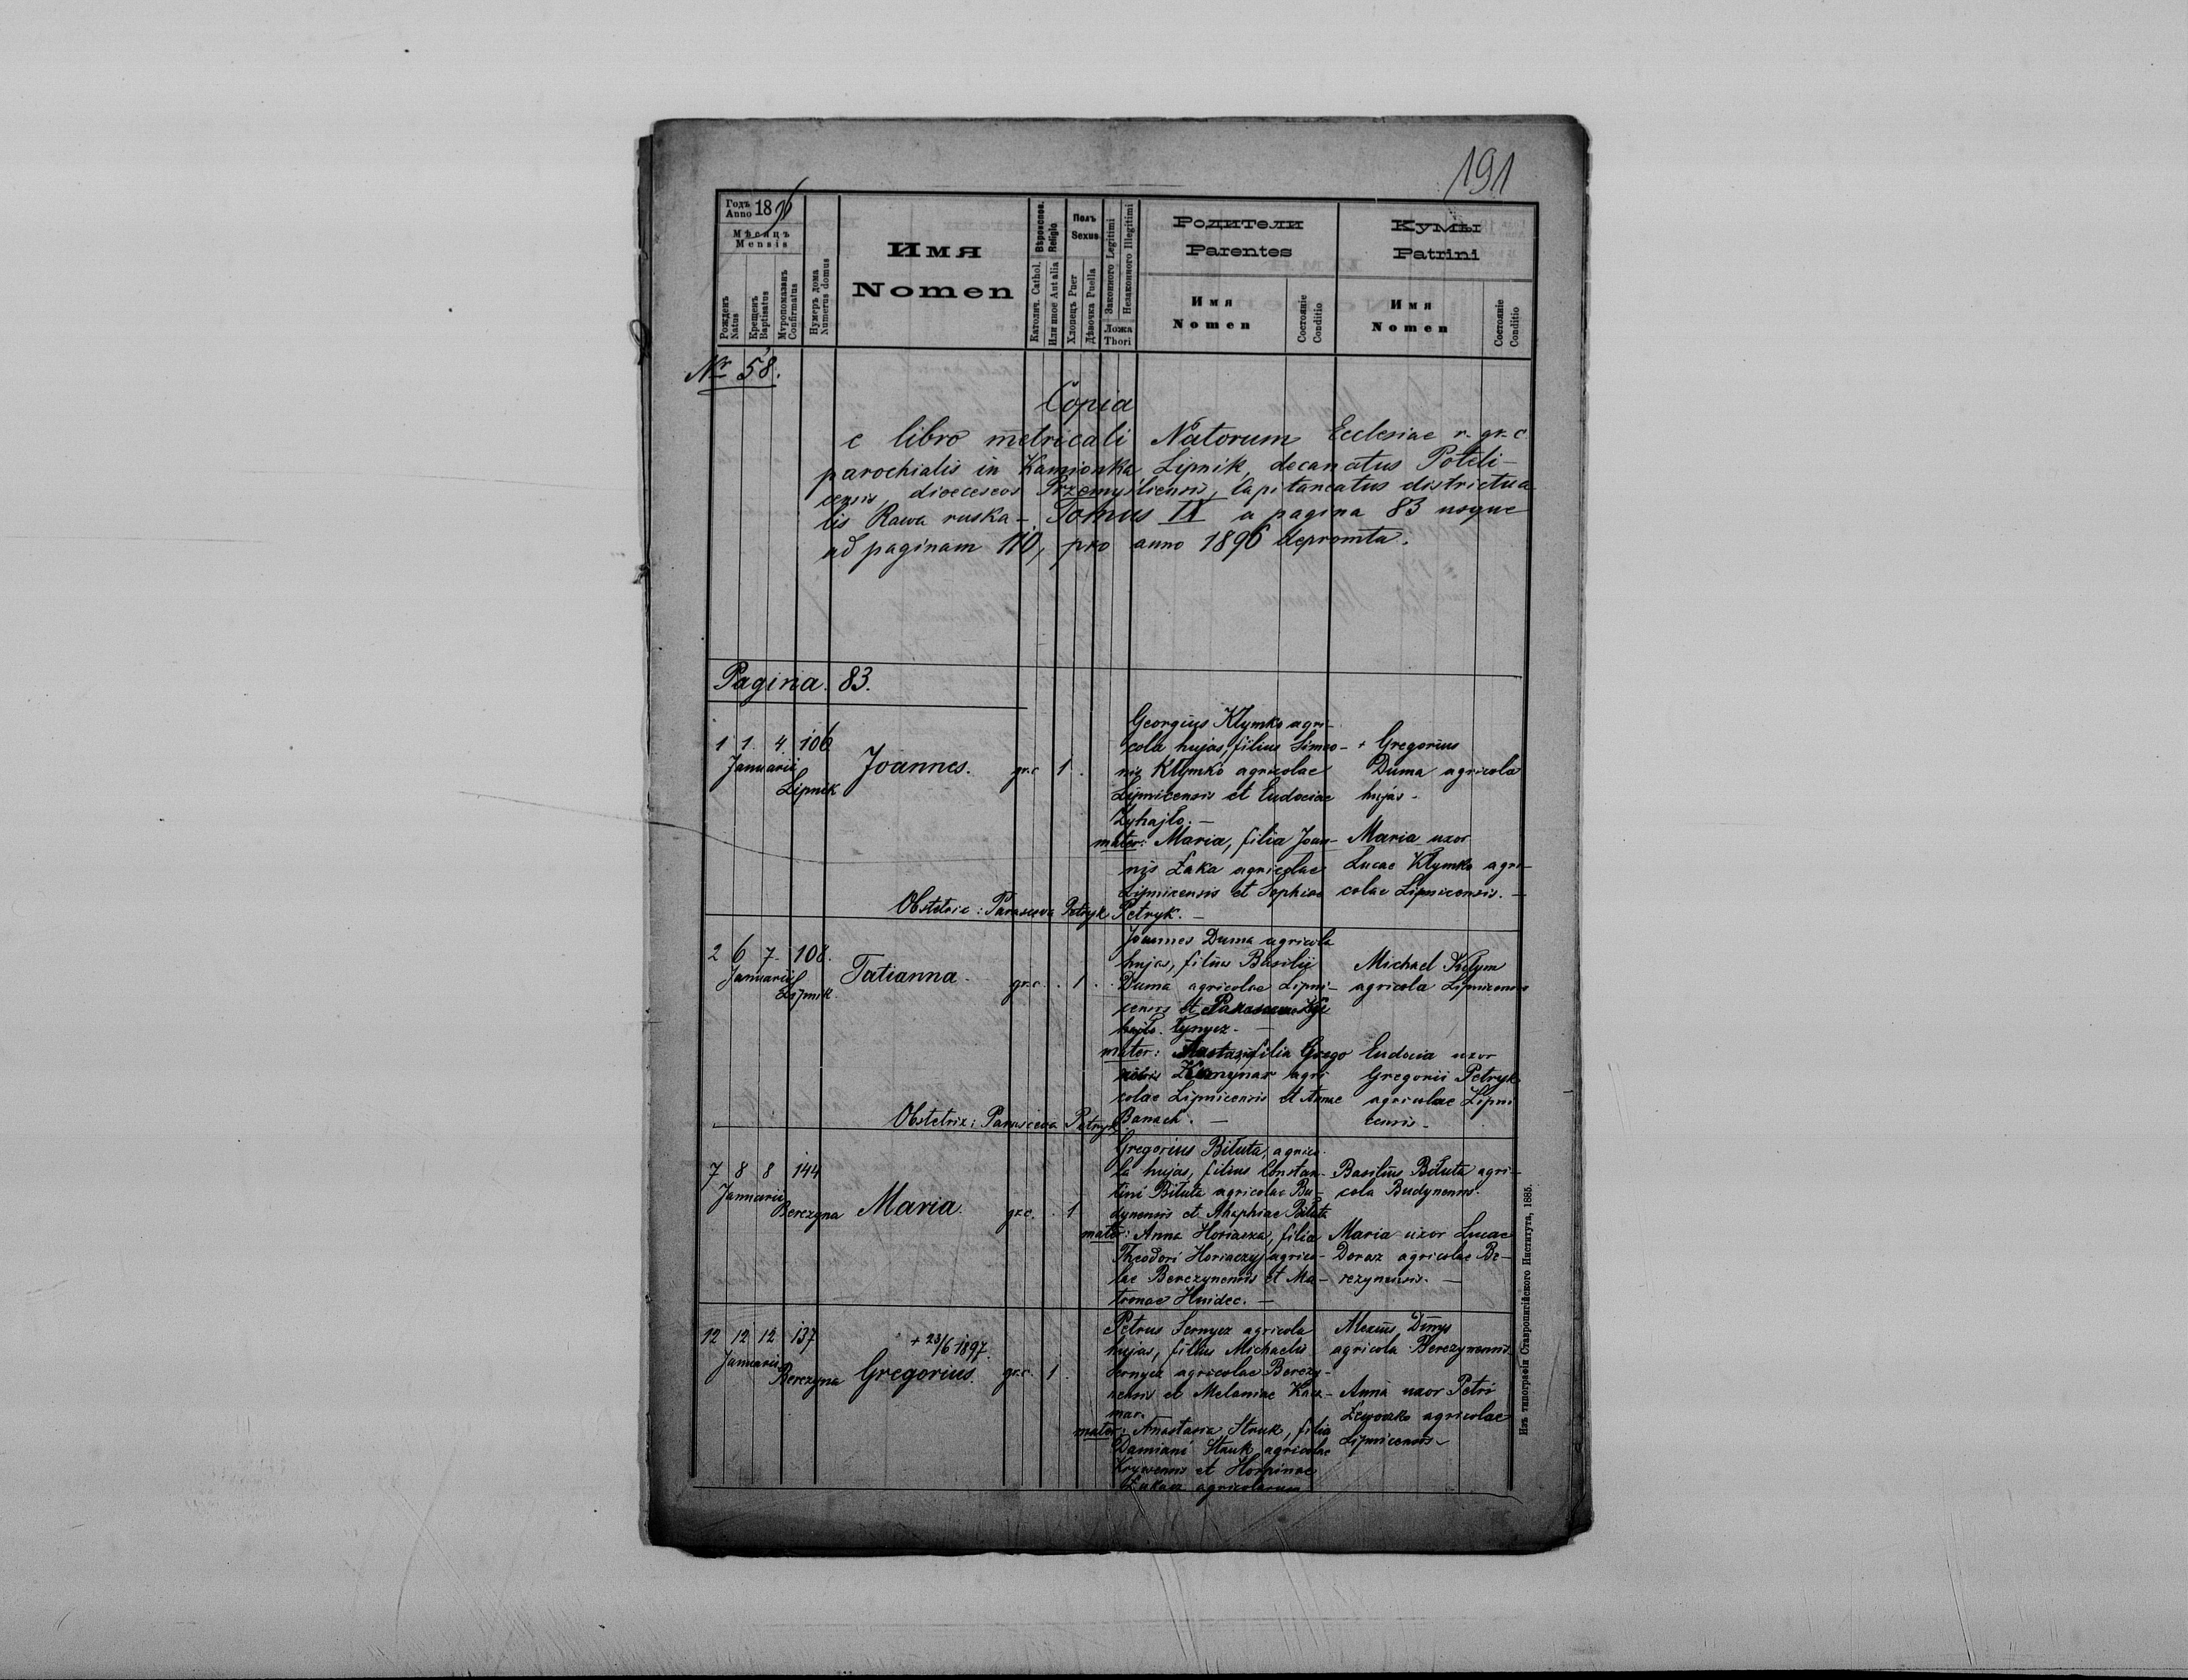 191
Годъ Anno 1896
Мѣсяцъ
Mensis
Рожденъ Natus
Крещенъ Baptisatus
Мѵропомазанъ Confirmatus
Нумеръ дома Numerus domus
Имя
Nomen
Вѣроиспов. Religio
Католич. Cathol.
Или иное Aut alia
Полъ
Sexus
Хлопецъ Puer
Дѣвочка Puella
Законного Legitimi
Незаконного Illegitimi
Ложа
Thori
Родители
Parentes
Имя
Nomen
Состояніе Conditio
Кумы
Patrini
Имя
Nomen
Состояніе Conditio
Nr 58.
Copia
e libro metricali Natorum Ecclesiae r. gr. c.
parochialis in Kamionka Lipnik, decanatus Poteli-
censis, dioeceseos Przemysliensis, Capitaneatus districtua-
lis Rawa ruska - Tomus IX a pagina 83 usque
ad paginam 110, pro anno 1896 depromta.
Pagina 83.
1 1 4 106
Januarii
Lipnik
Joannes. gr.c 1.
Georgius Klymko agri-
cola hujas, filius Simeo-
nis Klymko agricolae
Lipnicensis et Eudociae
Zyhajło. -
mater: Maria, filia Joan-
nis Łaka agricolae
Lipnicensis et Sophiae
Petryk. -
+ Gregorius
Duma agricola
hujas -
Maria uxor
Lucae Klymko agri-
colae Lipnicensis. -
Obstetrix: Parasceva Petryk
2 6 7 108.
Januarii
Lipnik.
Tatianna. gr.c. . 1.
Joannes Duma agricola
hujas, filius Basilii
Duma agricolae Lipni-
censis et
mater: filia Grego
rii agri
colae Lipnicensis et Annae
Banach. -
Michael
agricola Lipnicensis
Eudocia uxor
Gregorii Petryk
agricolae Lipni
censis -
Obstetrix: Parasceva Petryk
7 8 8 144
Januarii
Berezyna
Maria. gr.c. . 1
Gregorius Biłuta, agrico-
la hujas, filius Constan-
tini Biłuta agricolae Bu-
dynensis et Ahaphiae Biłuta
mater: Anna Horiacza, filia
Theodori Horiaczyj agrico-
lae Berezynensis et Ma-
tronae Hnidec. -
Basilius Biłuta agri-
cola Budynensis.
Maria uxor Lucae
Doraz agricolae Be-
rezynensis. -
12 12 12 137
Januarii
Berezyna
+ 23/6 1897.
Gregorius. gr.c. 1.
Petrus Sernycz agricola
hujas, filius Michaelis
Sernycz agricolae Berezy-
nensis et Melaniae Kacz-
mar.
mater: Anastasia Struk, filia
Damiani Struk agricolae
et Horpinae
Łukacz agricolarum
Alexius Dmys
agricola Berezynensis
Anna uxor Petri
agricolae
Lipnicensis -
Изъ типографіи Ставропигійского Института, 1885.